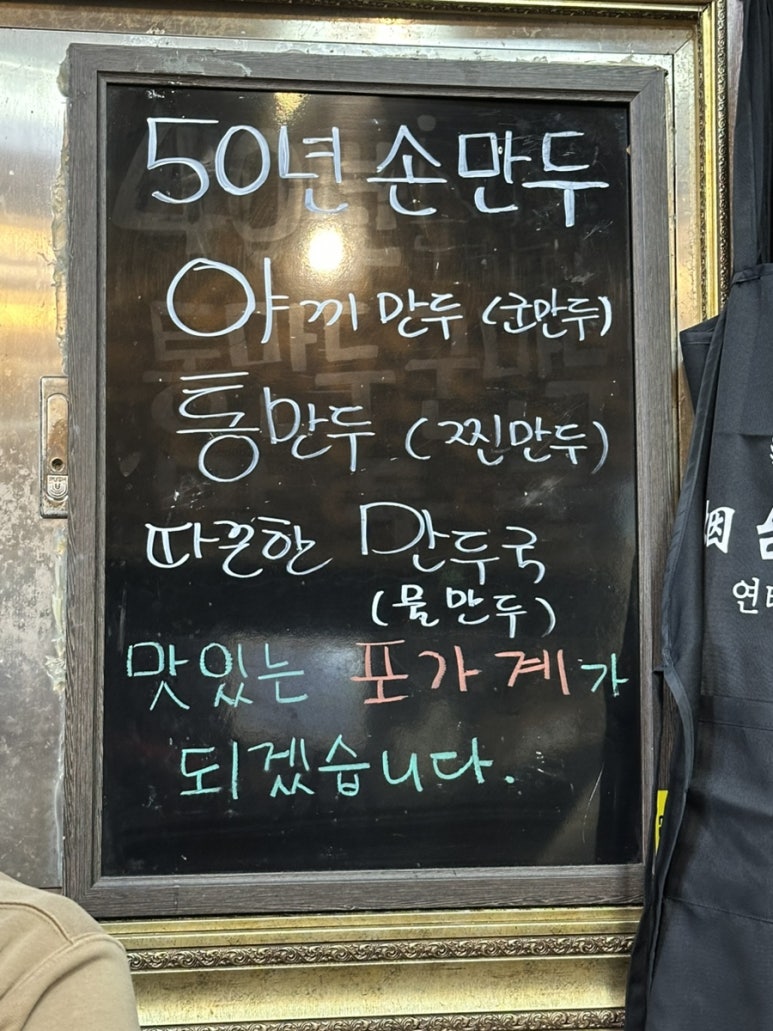 50년 손만두
야끼만두 (군만두)
통만두 (찐만두)
따끈한 만두국
(물만두)
맛있는 포가계가
되겠습니다.
烟
연태
PUSH